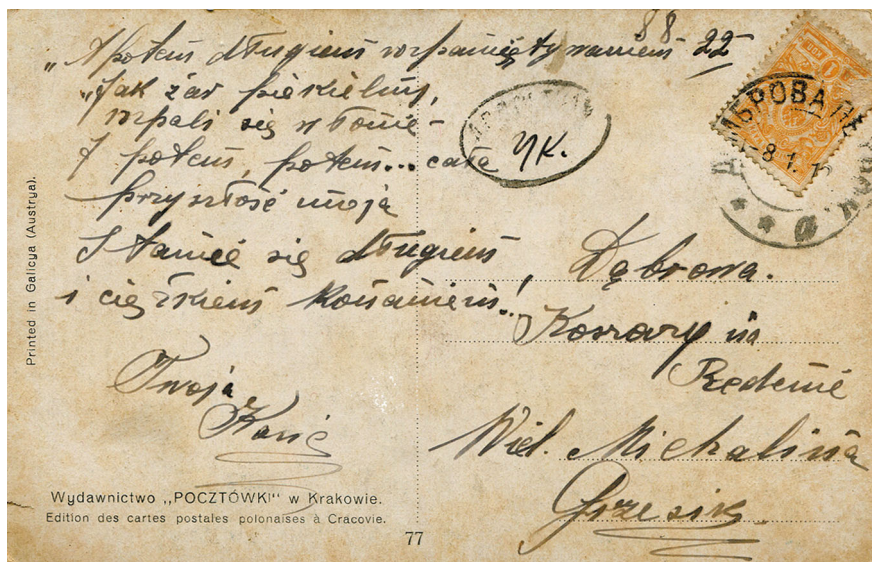 88
„A potem długiem wspamiętywaniem 22
„Jak żar piekielny,
wpali się w łonie –
I potem, potem... cała
przyszłość moja
Stanie się długiem
i ciężkiem konaniem!..
Twoja
УК.
ДОМБРОВА
8 1
Dąbrowa.
Koszary na
Redenie
Wiel. Michalina
Grzesik.
Printed in Galicya (Austrya).
Wydawnictwo „POCZTÓWKI“ w Krakowie.
Edition des cartes postales polonaises à Cracovie.
77